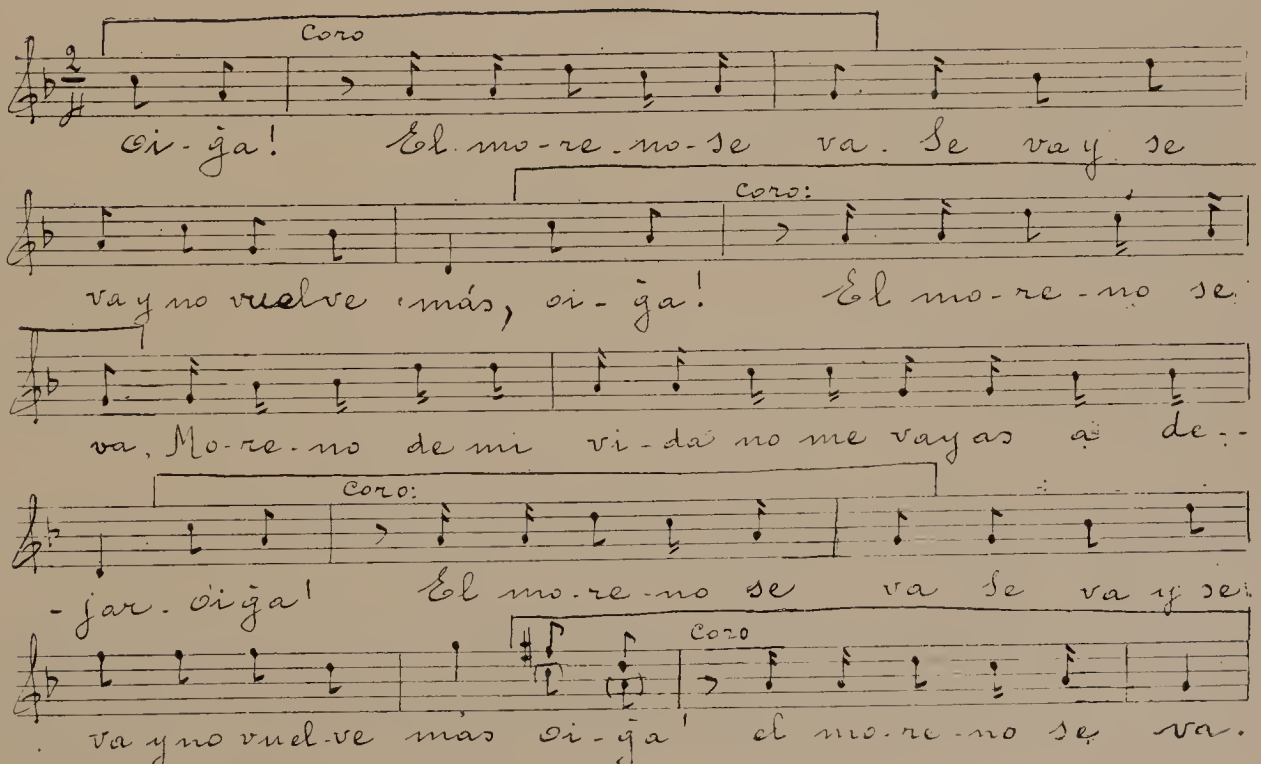 Coro
2
4
Oi-ga! El mo-re-no-se va. Se va y se
Coro:
va y no vuelve más, oi-ga! El mo-re-no se
va, Mo-re-no de mi vi-da no me vayas a de-
Coro:
-jar. Oiga! El mo-re-no se va Se va y se
Coro
va y no vuel-ve más oi-ga! el mo-re-no se va.